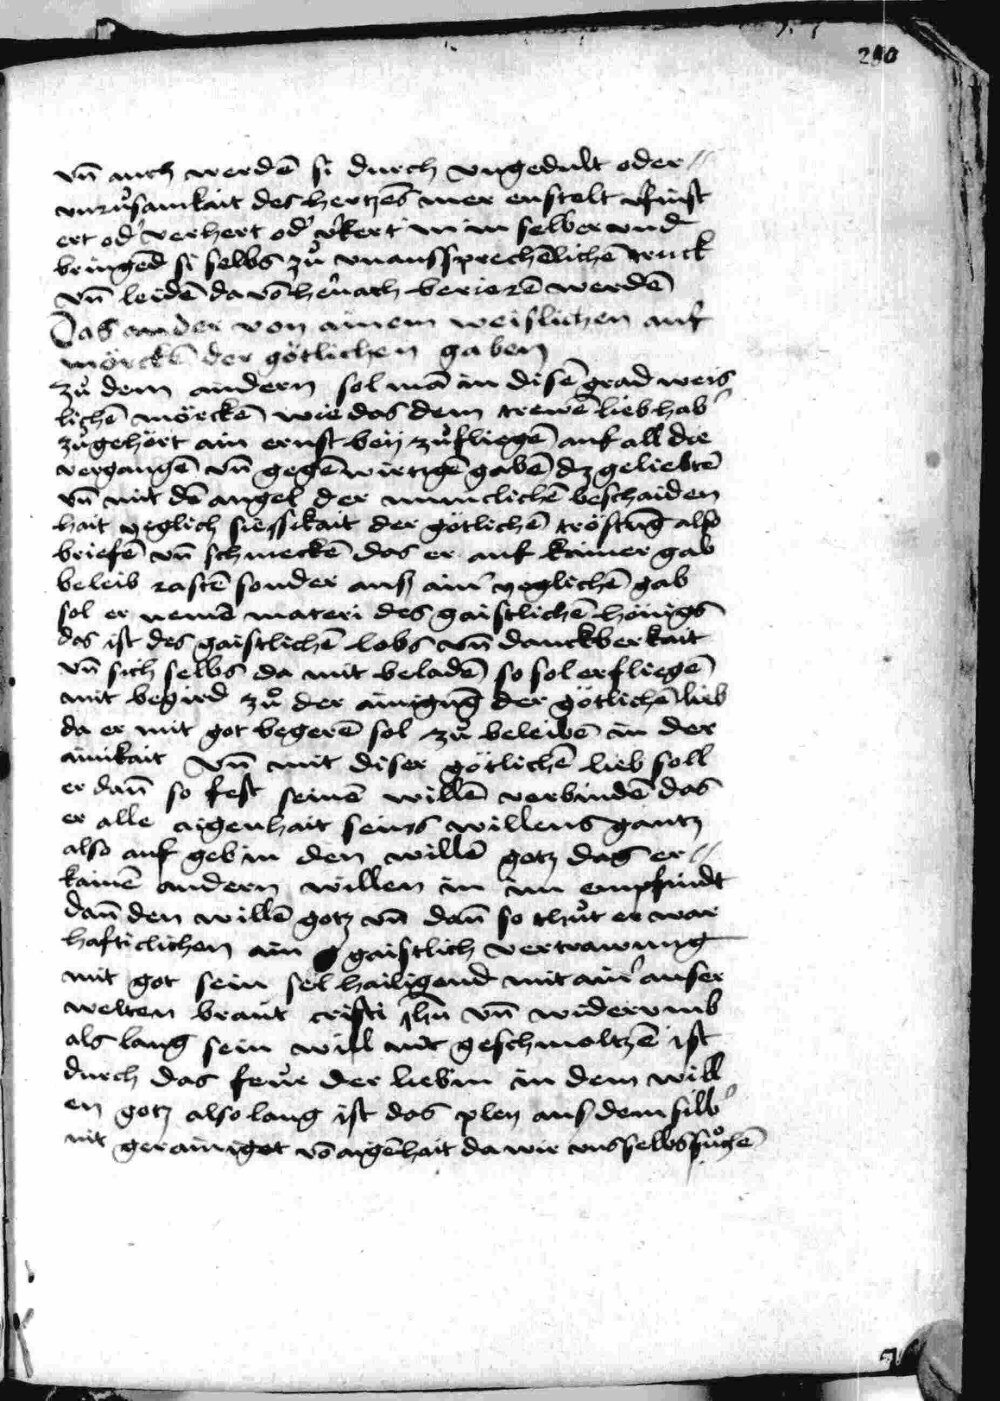 290
vn̄ auch werdē si durch vngedult oder
vnrůsamkait des hertzēs mer enstelt v̓finst
ert od̓ verhert od̓ v̓kert in in selber vnd
bringēd si selbs zů vnaussprechēlichē truck
vn̄ leidē da vō hernach berierē werdē
Das ander von ainem weislichen auf
mörckē der götlichen gaben
zů dem andern sol mā in disē grad weis
lichē mörckē wie das dem trewē liebhab̓
zůgehört ain ernst beÿ zůfliegē auf all die
vergangē vn̄ gegēwirtigē gabē dz geliebtē
vn̄ mit dē angel der minnclichē beschaiden
hait yeglich siessikait der götlichē tröstūg also
briefē vn̄ schmeckē das er auf kainer gab
beleib rastē sonder auß ainr̓ yeglichē gab
sol er nemē materi des gaistlichē hönigs
das ist des gaistlichē lobs vn̄ danckberkait
vn̄ sich selbs da mit beladē so sol er fliegē
mit begird zů der ainigūg der götlichē lieb
da er mit got begerē sol zů beleibē in der
ainikait vn̄ mit diser götlichē lieb soll
er dan̄ so fest seinē willē verbindē das
er alle aigenhait seins willens gantz
also auf geb in den willē gotz das er
kainē andern willen in im empfindt
dan̄ den willē gotz vn̄ dan̄ so thůt er war
hafticlichen ain gaistlich vertrawung
mit got sein sel hailigend mit ainr̓ auser
welten braut cristi ihū vn̄ widerumb
als lang sein will nit geschmoltzē ist
durch das feur der lieb in in dem will
en gotz also lang ist das pley aus dem silb̓
nit gerainiget vō aigēhait da wir vns selbs sůchē